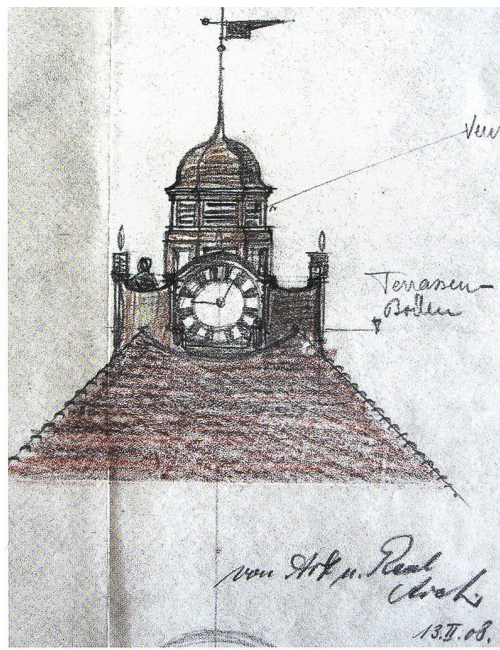 Terrassen-
Boden
von Ark u. Real
Arch.
13.II.08.